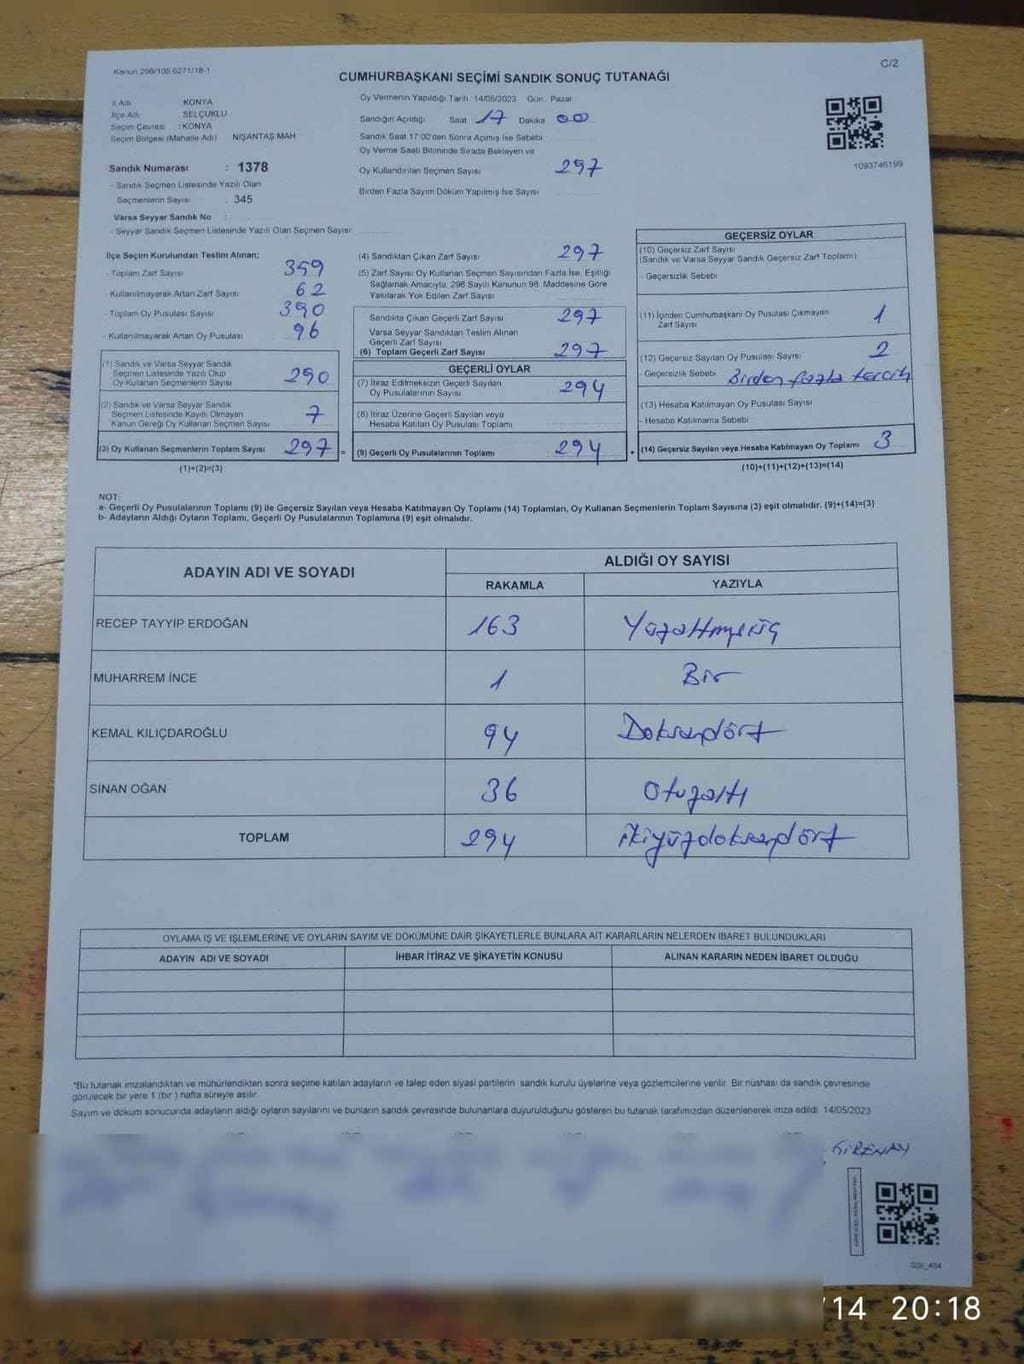 Kanun 298/105 6271/18-1
C/2
CUMHURBAŞKANI SEÇİMİ SANDIK SONUÇ TUTANAĞI
İl Adı KONYA
İlçe Adı SELÇUKLU
Seçim Çevresi : KONYA
Seçim Bölgesi (Mahalle Adı) NİŞANTAŞ MAH
Sandık Numarası : 1378
- Sandık Seçmen Listesinde Yazılı Olan
Seçmenlerin Sayısı : 345
Varsa Seyyar Sandık No :
- Seyyar Sandık Seçmen Listesinde Yazılı Olan Seçmen Sayısı
Oy Vermenin Yapıldığı Tarih : 14/05/2023 Gün : Pazar
Sandığın Açıldığı Saat 17 Dakika 00
Sandık Saat 17:00'den Sonra Açılmış İse Sebebi
Oy Verme Saati Bitiminde Sırada Bekleyen ve
Oy Kullandırılan Seçmen Sayısı 297
Birden Fazla Sayım Döküm Yapılmış İse Sayısı
1093746199
İlçe Seçim Kurulundan Teslim Alınan;
- Toplam Zarf Sayısı 359
- Kullanılmayarak Artan Zarf Sayısı 62
- Toplam Oy Pusulası Sayısı 390
- Kullanılmayarak Artan Oy Pusulası 96
(1) Sandık ve Varsa Seyyar Sandık
Seçmen Listesinde Yazılı Olup
Oy Kullanan Seçmenlerin Sayısı 290
(2) Sandık ve Varsa Seyyar Sandık
Seçmen Listesinde Kayıtlı Olmayan
Kanun Gereği Oy Kullanan Seçmen Sayısı 7
(3) Oy Kullanan Seçmenlerin Toplam Sayısı 297 =
(1)+(2)=(3)
(4) Sandıktan Çıkan Zarf Sayısı 297
(5) Zarf Sayısı Oy Kullanan Seçmen Sayısından Fazla İse, Eşitliği
Sağlamak Amacıyla, 298 Sayılı Kanunun 98. Maddesine Göre
Yakılarak Yok Edilen Zarf Sayısı
Sandıkta Çıkan Geçerli Zarf Sayısı 297
Varsa Seyyar Sandıktan Teslim Alınan
Geçerli Zarf Sayısı
(6) Toplam Geçerli Zarf Sayısı 297
GEÇERLİ OYLAR
(7) İtiraz Edilmeksizin Geçerli Sayılan
Oy Pusulalarının Sayısı 294
(8) İtiraz Üzerine Geçerli Sayılan veya
Hesaba Katılan Oy Pusulası Toplamı
(9) Geçerli Oy Pusulalarının Toplamı 294 +
GEÇERSİZ OYLAR
(10) Geçersiz Zarf Sayısı
(Sandık ve Varsa Seyyar Sandık Geçersiz Zarf Toplamı)
- Geçersizlik Sebebi
(11) İçinden Cumhurbaşkanı Oy Pusulası Çıkmayan
Zarf Sayısı 1
(12) Geçersiz Sayılan Oy Pusulası Sayısı 2
- Geçersizlik Sebebi Birden fazla tercih
(13) Hesaba Katılmayan Oy Pusulası Sayısı
- Hesaba Katılmama Sebebi
(14) Geçersiz Sayılan veya Hesaba Katılmayan Oy Toplamı 3
(10)+(11)+(12)+(13)=(14)
NOT:
a- Geçerli Oy Pusulalarının Toplamı (9) ile Geçersiz Sayılan veya Hesaba Katılmayan Oy Toplamı (14) Toplamları, Oy Kullanan Seçmenlerin Toplam Sayısına (3) eşit olmalıdır. (9)+(14)=(3)
b- Adayların Aldığı Oyların Toplamı, Geçerli Oy Pusulalarının Toplamına (9) eşit olmalıdır.
ADAYIN ADI VE SOYADI
ALDIĞI OY SAYISI
RAKAMLA YAZIYLA
RECEP TAYYİP ERDOĞAN 163 Yüzaltmışüç
MUHARREM İNCE 1 Bir
KEMAL KILIÇDAROĞLU 94 Doksandört
SİNAN OĞAN 36 Otuzaltı
TOPLAM 294 ikiyüzdoksandört
OYLAMA İŞ VE İŞLEMLERİNE VE OYLARIN SAYIM VE DÖKÜMÜNE DAİR ŞİKAYETLERLE BUNLARA AİT KARARLARIN NELERDEN İBARET BULUNDUKLARI
ADAYIN ADI VE SOYADI İHBAR İTİRAZ VE ŞİKAYETİN KONUSU ALINAN KARARIN NEDEN İBARET OLDUĞU
*Bu tutanak imzalandıktan ve mühürlendikten sonra seçime katılan adayların ve talep eden siyasi partilerin sandık kurulu üyelerine veya gözlemcilerine verilir. Bir nüshası da sandık çevresinde
görülecek bir yere 1 (bir) hafta süreyle asılır.
Sayım ve döküm sonucunda adayların aldığı oyların sayılarını ve bunların sandık çevresinde bulunanlara duyurulduğunu gösteren bu tutanak tarafımızdan düzenlenerek imza edildi. 14/05/2023
GİRENAY
/14 20:18